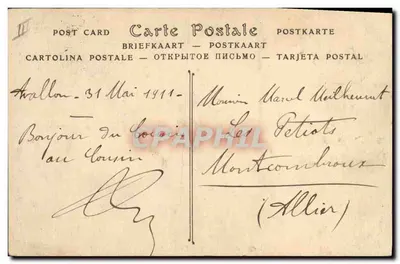 II
POST CARD Carte Postale POSTKARTE
BRIEFKAART — POSTKAART
CARTOLINA POSTALE — ОТКРЫТОЕ ПИСЬМО — TARJETA POSTAL
Avallon - 31 Mai 1911 -
Bonjour du cousin
au cousin
Monsieur Marcel
Les Petiots
Montcombroux
(Allier)
CPAPHIL